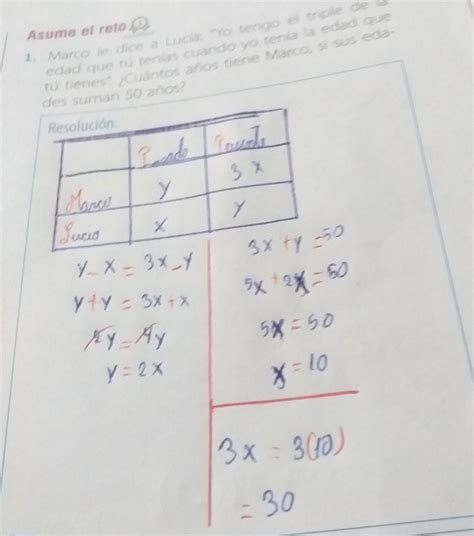 Asume el reto
1. Marco le dice a Lucía: "Yo tengo el triple de la
edad que tú tenías cuando yo tenía la edad que
tú tienes". ¿Cuántos años tiene Marco, si sus eda-
des suman 50 años?
Resolución:
Pasado Presente
Marco y 3x
Lucia x y
y - x = 3x - y
y + y = 3x + x
2y = 4y
y = 2x
3x + y = 50
5x + 2x = 50
5x = 50
x = 10
3x = 3(10)
= 30